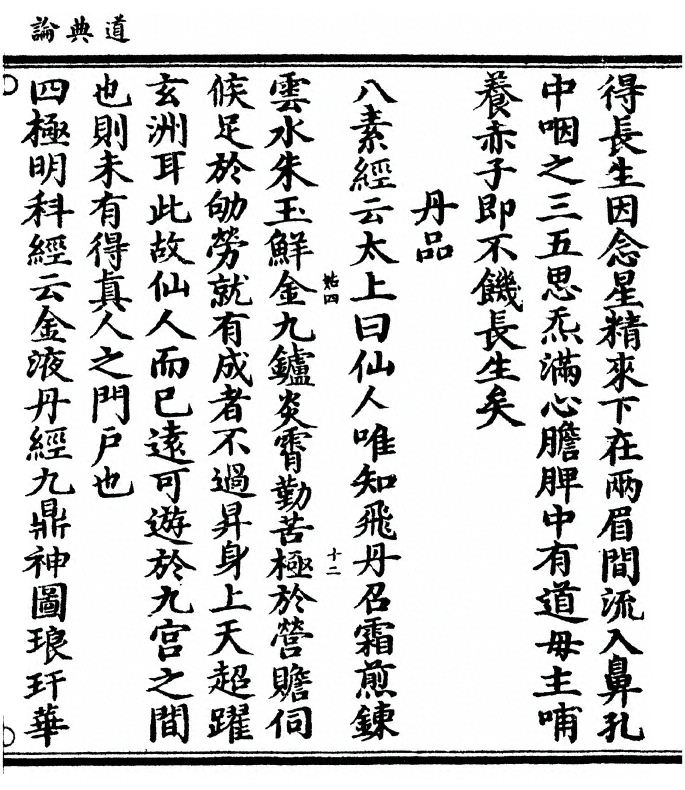 道典論
得長生因念星精來下在兩眉間流入鼻孔
中咽之三五思炁滿心膽脾中有道母主哺
養赤子即不饑長生矣
丹品
八素經云太上曰仙人唯知飛丹召霜煎鍊
姑四
十二
雲水朱玉鮮金九鑪炎霄勤苦極於營贍伺
候足於劬勞就有成者不過昇身上天超躍
玄洲耳此故仙人而已遠可遊於九宮之間
也則未有得眞人之門戶也
四極明科經云金液丹經九鼎神圖琅玕華